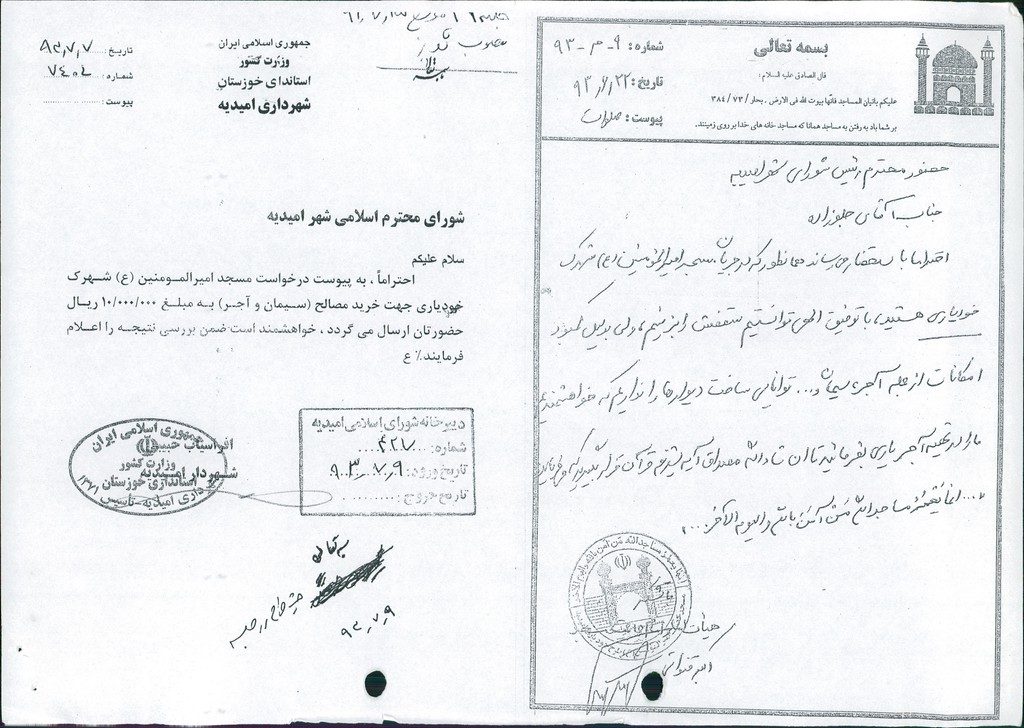 بسمه تعالی
قال الصادق علیه السلام :
علیکم باتیان المساجد فانّها بیوت الله فی الارض . بحار / ۷۳ / ۳۸۴
بر شما باد به رفتن به مساجد همانا که مساجد خانه های خدا بر روی زمینند.
شماره : ۹ - م - ۹۳
تاریخ : ۹۳/۶/۲۲
پیوست : صلوات
حضور محترم رئیس شورای شهر امیدیه
جناب آقای
احتراما با استحضار می رساند همانطور که در جریان مسجد امیرالمومنین (ع) شهرک
خودیاری هستید، با توفیق الهی توانستیم سقفش را بزنیم، ولی بدلیل کمبود
امکانات از جمله آجر، سیمان و... توانایی ساخت دیوارها را نداریم که خواهشمندیم
ما را در تهیه آجر یاری بفرمائید تا ان شاء الله مصداق آیه قرآن قرار بگیرید که
... انما یعمر مساجد الله من آمن بالله و الیوم الآخر ...
هیأت امنای
جمهوری اسلامی ایران
وزارت کشور
استانداری خوزستان
شهرداری امیدیه
تاریخ : ۹۳,۷,۷
شماره : ۷۴۰۴
پیوست :
شورای محترم اسلامی شهر امیدیه
سلام علیکم
احتراماً ، به پیوست درخواست مسجد امیرالمومنین (ع) شهرک
خودیاری جهت خرید مصالح (سیمان و آجر) به مبلغ ۱۰/۰۰۰/۰۰۰ ریال
حضورتان ارسال می گردد ، خواهشمند است ضمن بررسی نتیجه را اعلام
فرمایند٪ ع
دبیرخانه شورای اسلامی امیدیه
شماره: ۴۲۷
تاریخ ورود: ۹۳،۷،۹
تاریخ خروج:
افراسیاب
شهردار امیدیه
جمهوری اسلامی ایران
وزارت کشور
استانداری خوزستان
شهرداری امیدیه - تاسیس ۱۳۷۱
بسمه تعالی
۹۳,۷,۹